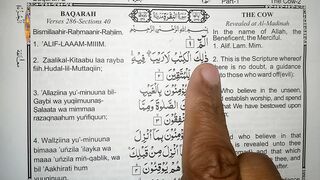 Part-1
The Cow-2
BAQARAH
Verses 286-Sections 40
THE COW
Revealed at Al-Madinah
Bismillaahir-Rahmaanir-Rahiim.
In the name of Allah, the
Beneficent, the Merciful.
1. 'ALIF-LAAAM-MIIIM.
الٓمّٓ
1. Alif. Lam. Mim.
2. Zaalikal-Kitaabu laa rayba
fiih.Hudal-lil-Muttaqiin;
ذٰلِكَ الْكِتٰبُ لَا رَيْبَ
2. This is the Scripture whereof
there is no doubt, a guidance
those who ward off(evil);
3. 'Allaziina yu'-minuuna bil-
Gaybi wa yuqiimuunas-
Salaata wa mimmaa
razaqnaahum yunfiquun;
Who believe in the unseen,
establish worship, and spend
that We have bestowed
upon
4. Wallziina yu'-minuuna
bimaaa 'uńzila 'ilayka wa
maaa 'uńzila miń-qablik, wa
bil-'Aakhirati hum
yuuqinuun.
who believe in that
is revealed unto thee
and that which
before thee, and